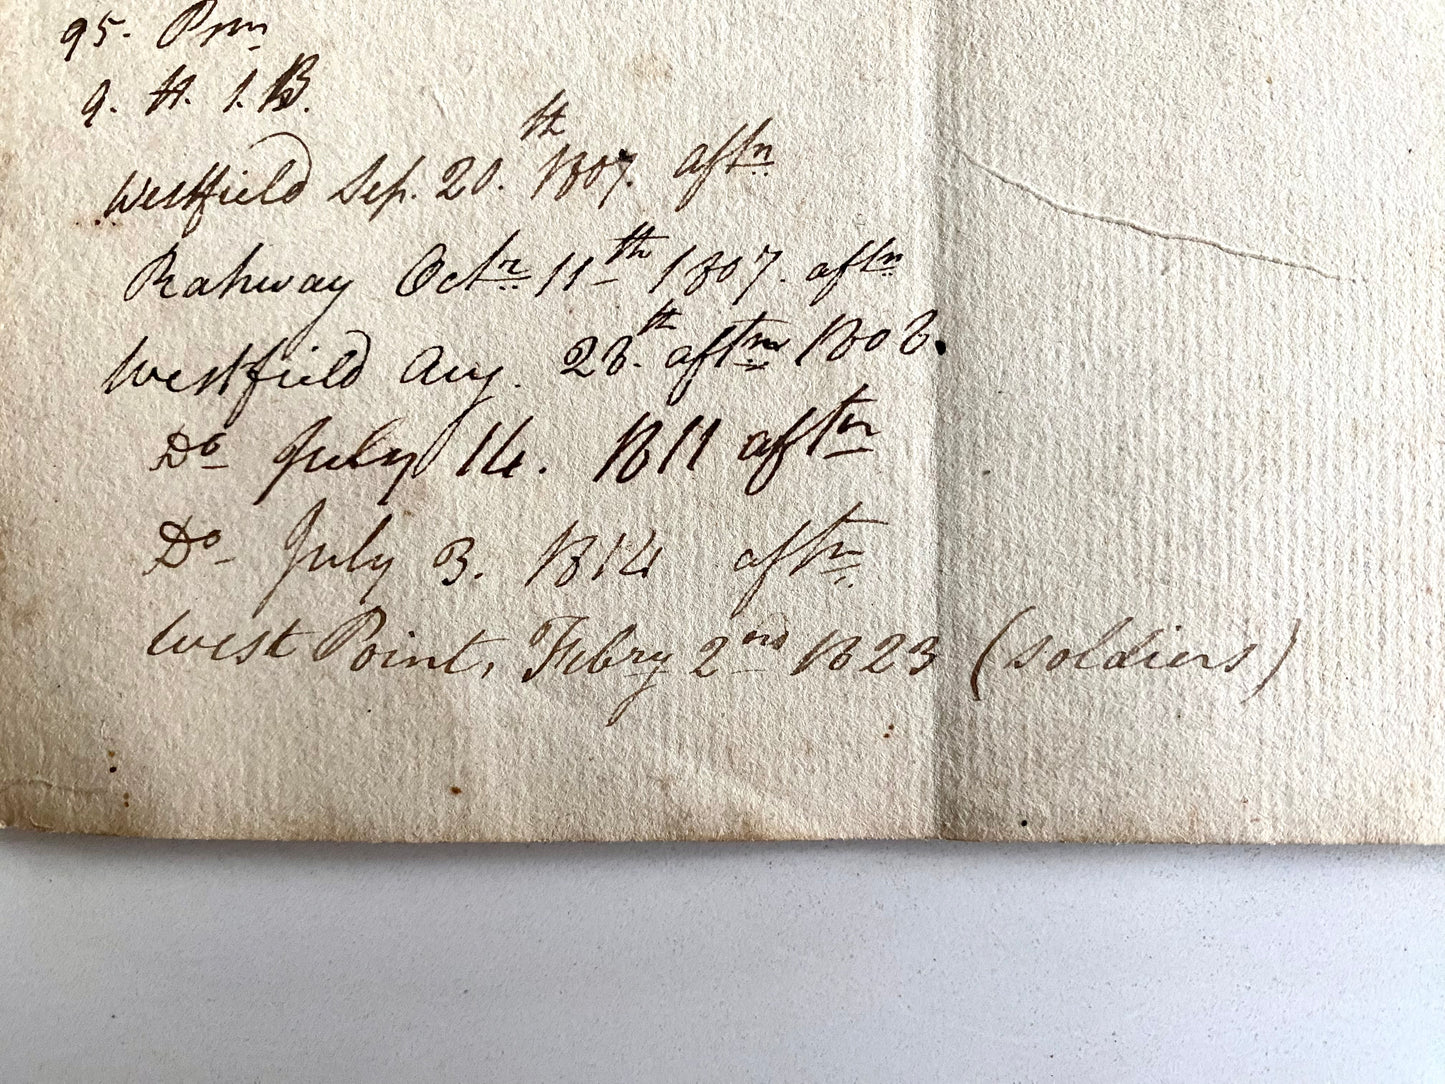 95. Psm
9. H. 1. B.
Westfield Sep. 20.th 1807. aftn
Rahway Octr 11th 1807. aftn
Westfield Aug. 28.th aftn 1808.
Do July 14. 1811 aftn
Do July 3. 1814 aftn
West Point, Febry 2nd 1823 (soldiers)